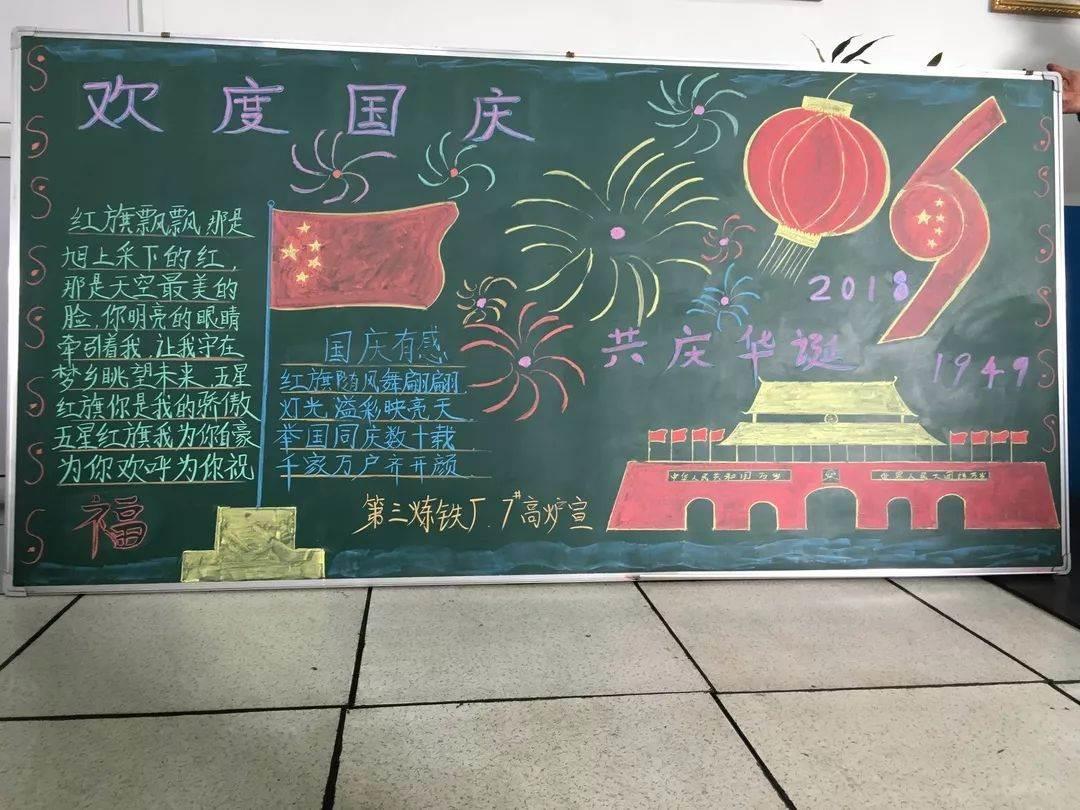 欢度国庆
红旗飘飘,那是
旭上采下的红,
那是天空最美的
脸,你明亮的眼睛
牵引着我,让我守在
梦乡眺望未来,五星
红旗你是我的骄傲
五星红旗我为你自豪
为你欢呼为你祝
福
国庆有感
红旗随风舞翩翩
灯光溢彩映亮天
举国同庆数十载
千家万户齐开颜
第三炼铁厂.7#高炉宣
2018
共庆华诞
1949
中华人民共和国万岁